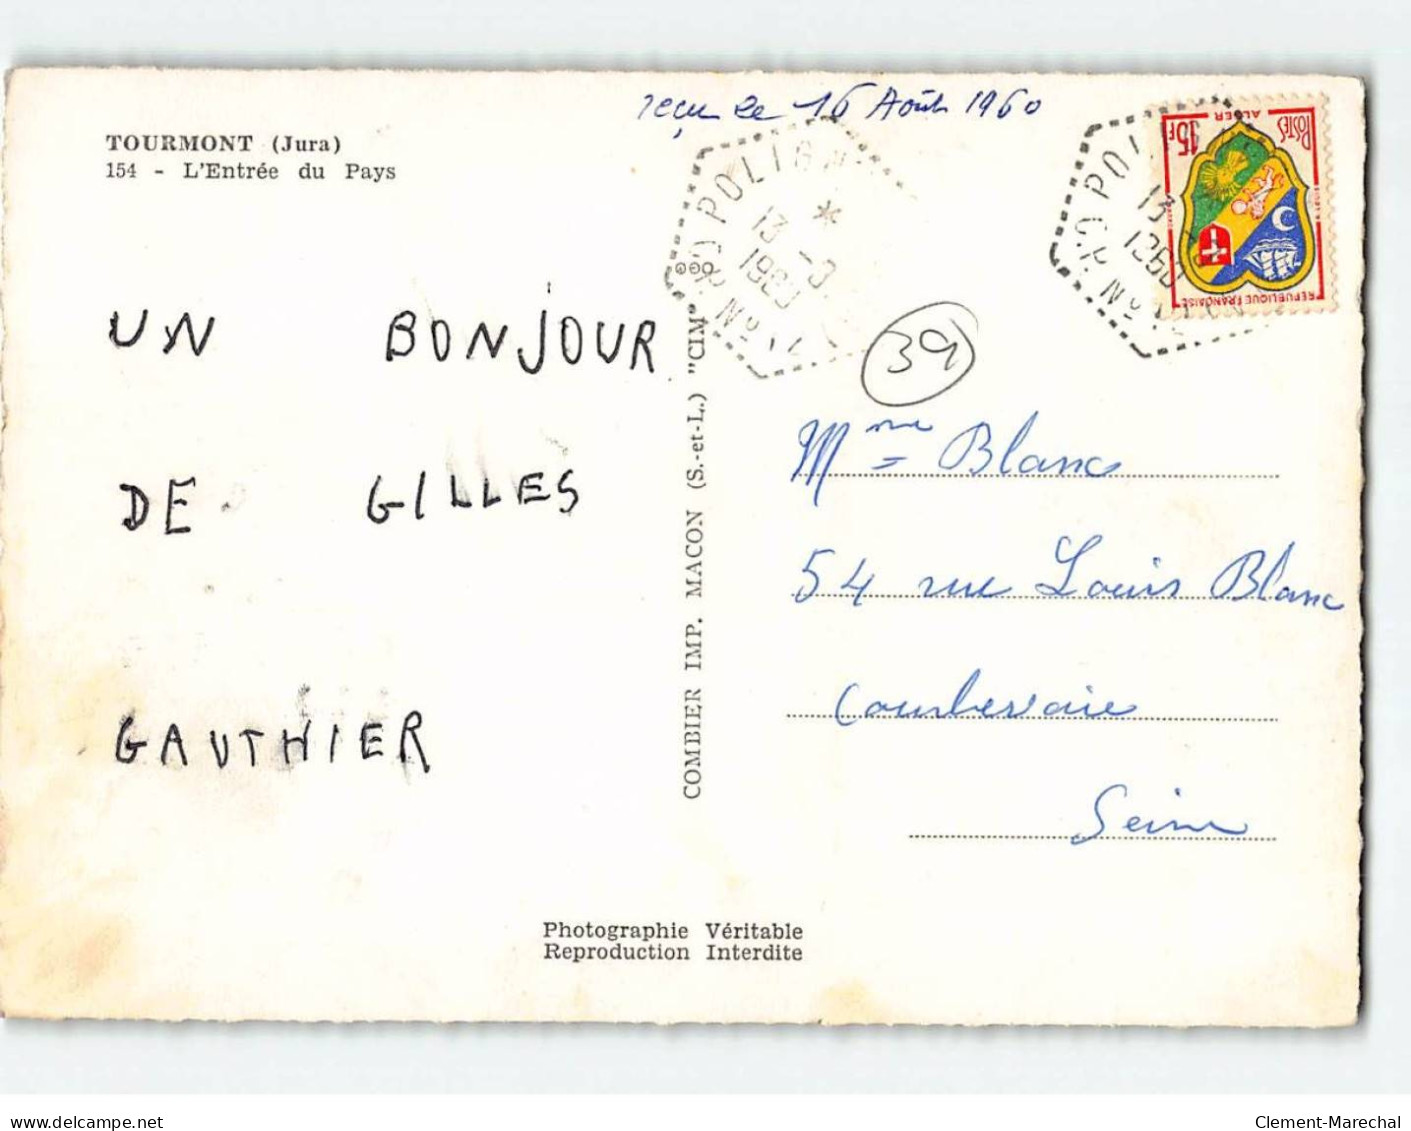 TOURMONT (Jura)
154 - L'Entrée du Pays
reçu le 16 Août 1960
UN BONJOUR
DE GILLES
GAUTHIER
COMBIER IMP. MACON (S.-et-L.) "CIM"
POLIGNY
13
1960
POLI
13
1960
15F
POSTES
ALGER
REPUBLIQUE FRANÇAISE
39
Mme Blanc
54 rue Louis Blanc
Courbevoie
Seine
Photographie Véritable
Reproduction Interdite
delcampe.net
Clement-Marechal